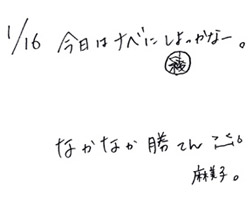 1/16 今日はナベにしよっかなー。
なかなか勝てん
麻美子。